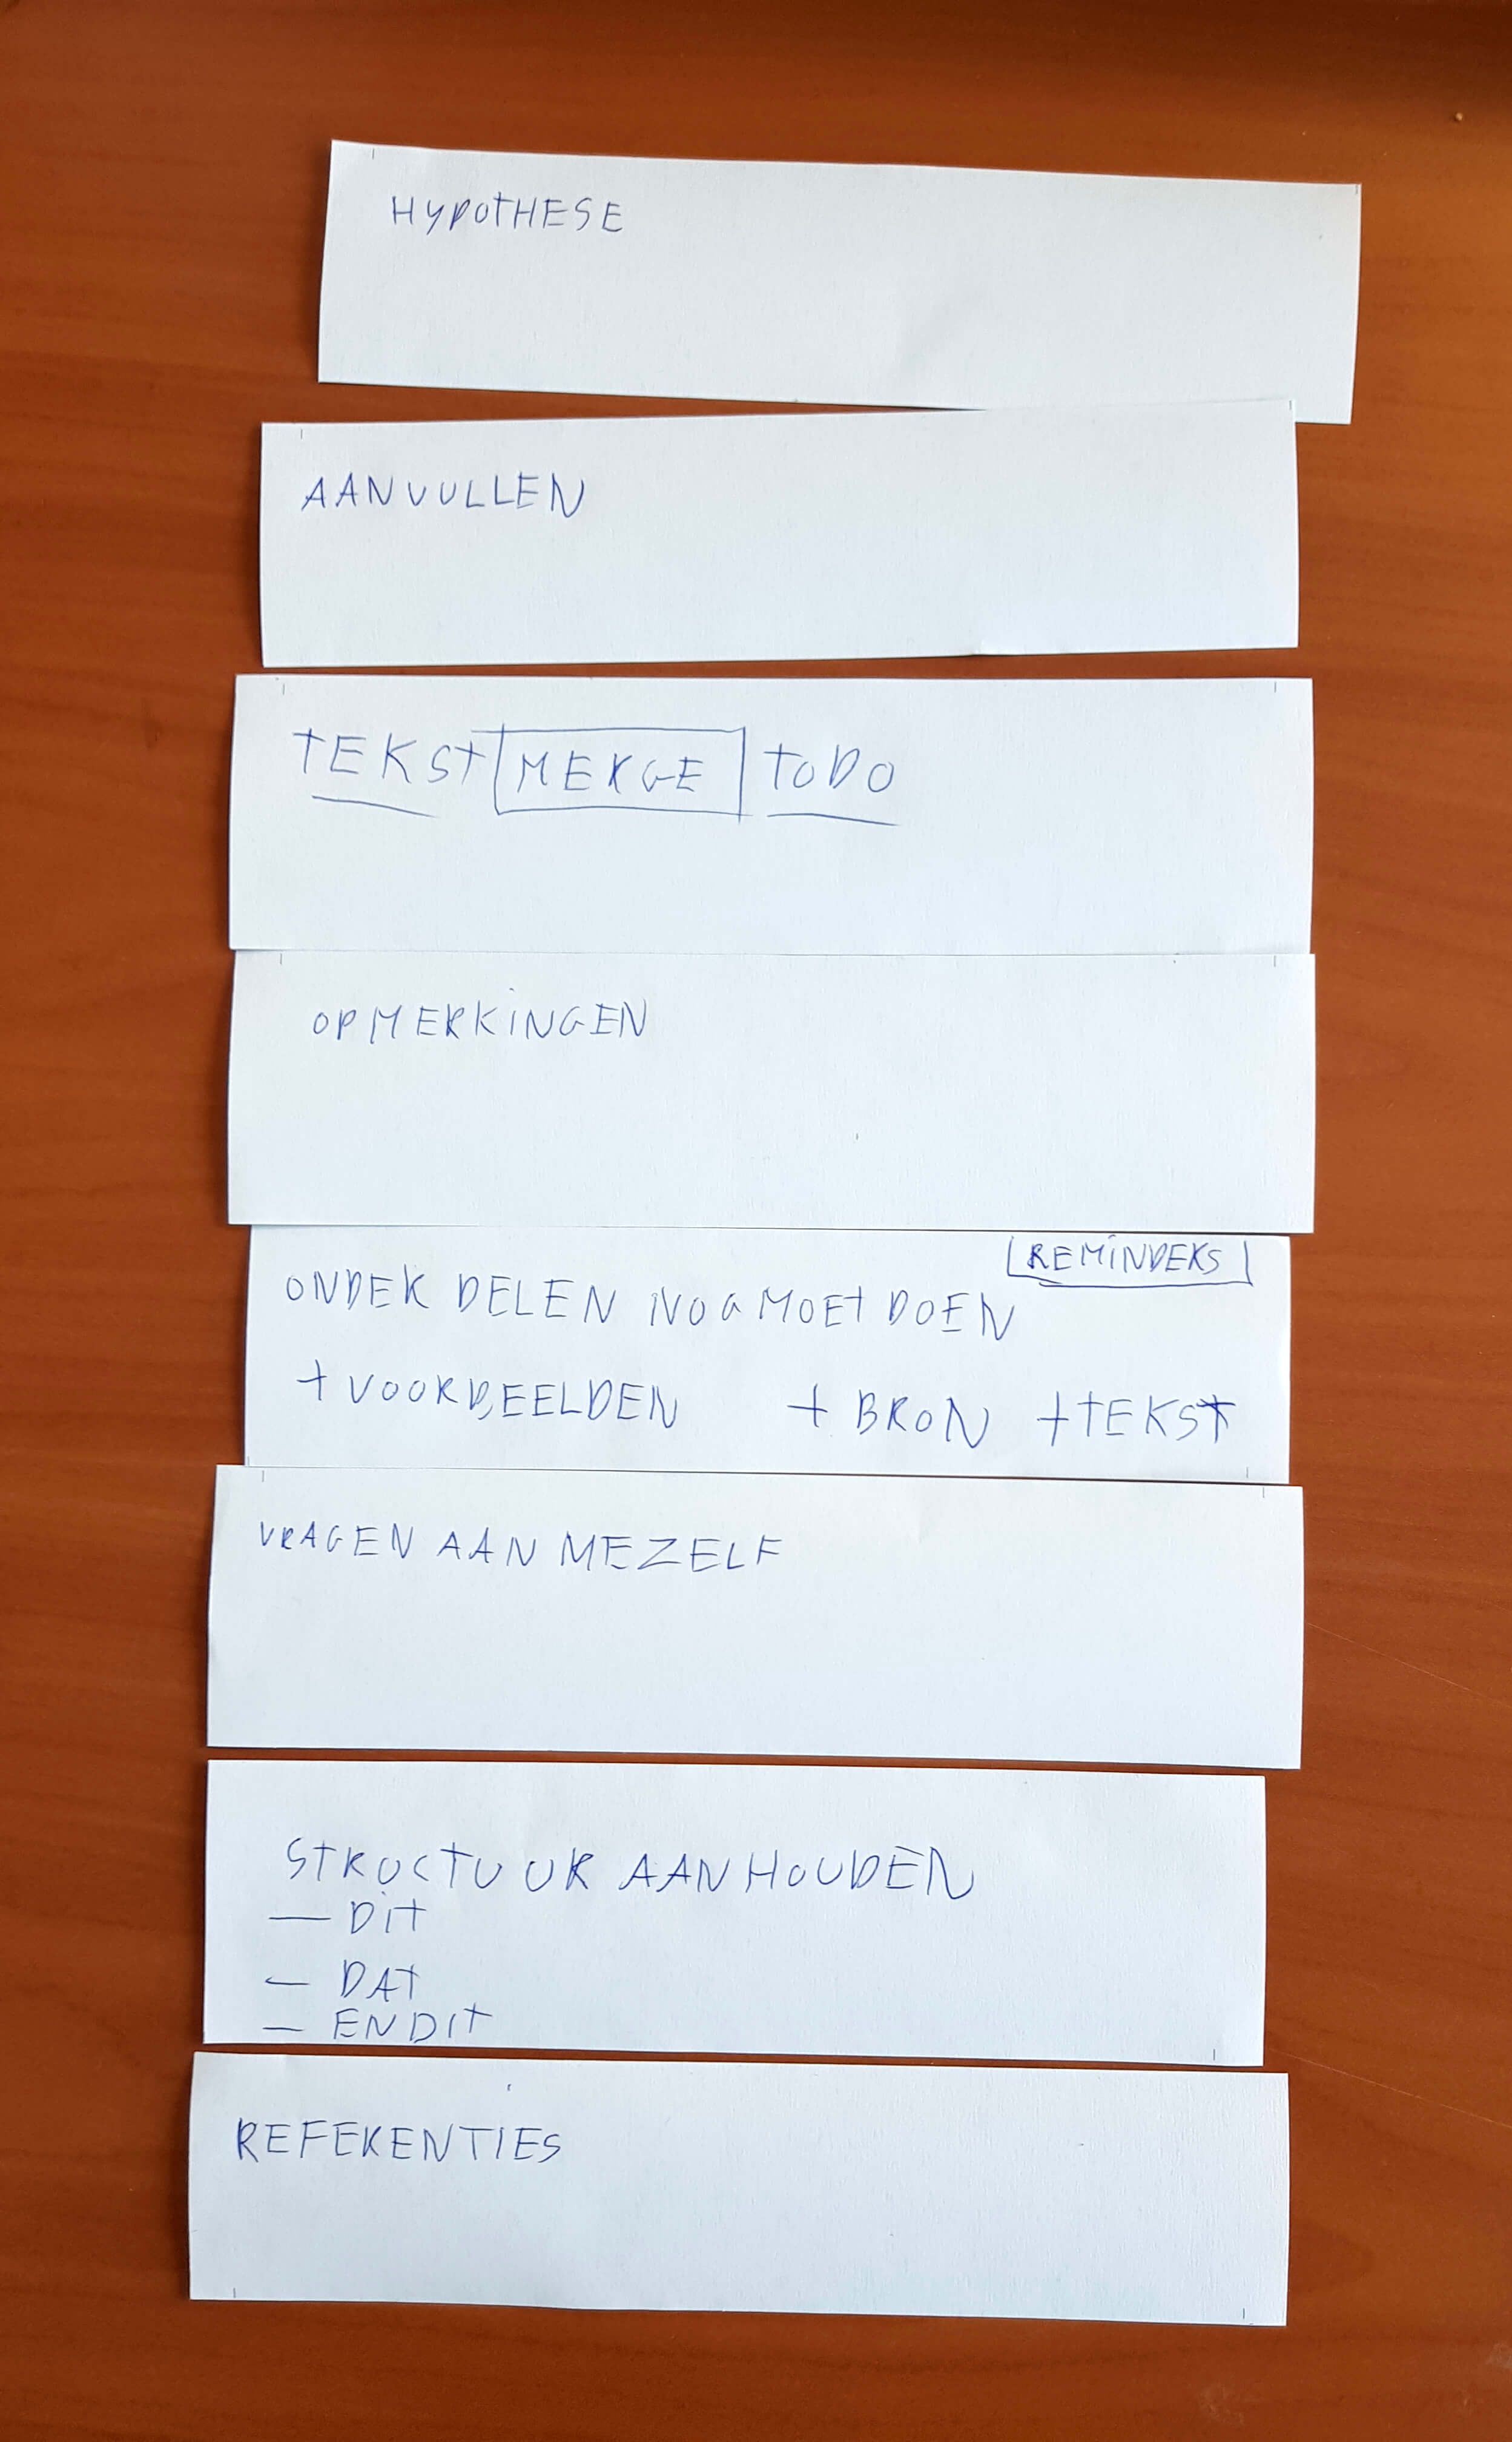 HYPOTHESE
AANVULLEN
TEKST MERGE TODO
OPMERKINGEN
REMINDERS
ONDER DELEN NOG MOET DOEN
+ VOORBEELDEN + BRON + TEKST
VRAGEN AAN MEZELF
STRUCTUUR AANHOUDEN
— DIT
— DAT
— EN DIT
REFERENTIES